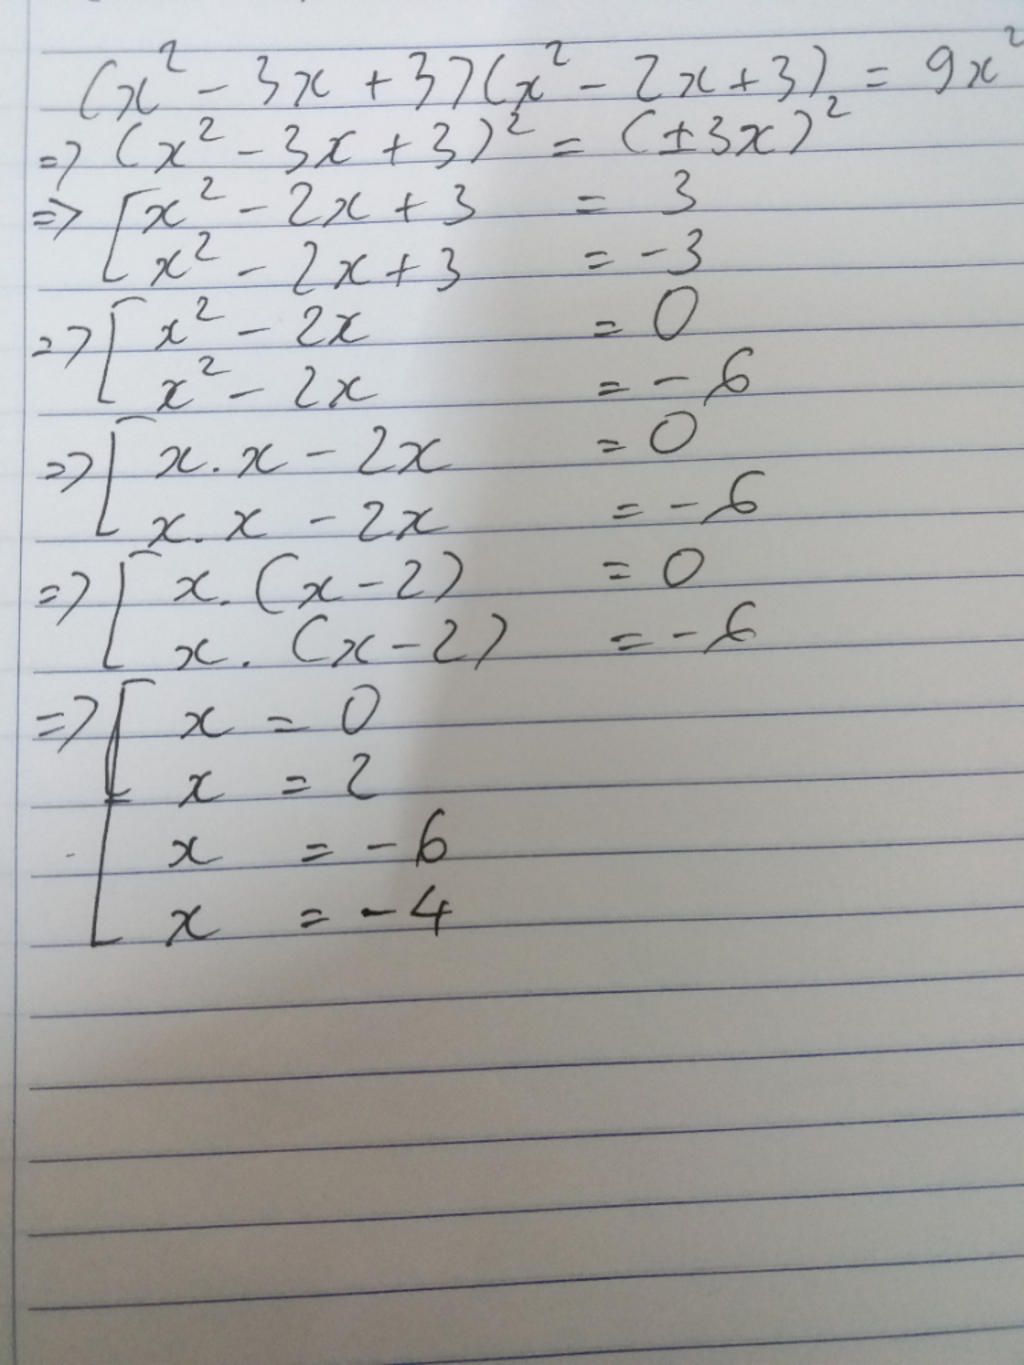 (x² - 3x + 3)(x² - 2x + 3) = 9x²
=> (x² - 3x + 3)² = (±3x)²
=> [ x² - 2x + 3 = 3
x² - 2x + 3 = -3
=> [ x² - 2x = 0
x² - 2x = -6
=> [ x.x - 2x = 0
x.x - 2x = -6
=> [ x.(x-2) = 0
x.(x-2) = -6
=> [ x = 0
x = 2
x = -6
x = -4